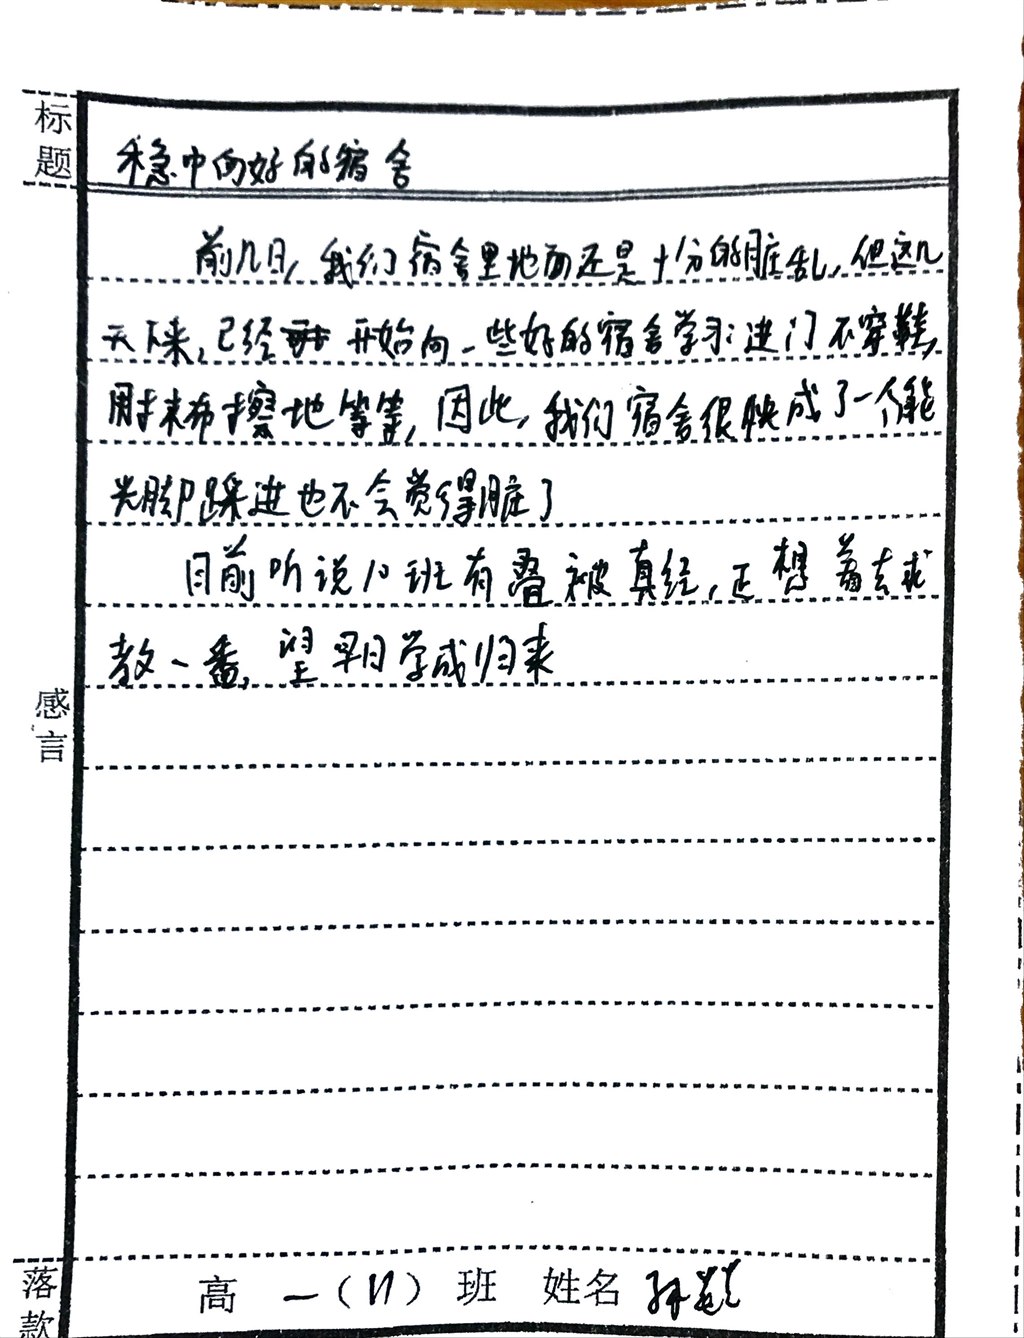 标题
稳中向好的宿舍
前几日，我们宿舍里地面还是十分的脏乱，但这几
天下来，已经开始向一些好的宿舍学习：进门不穿鞋，
用抹布擦地等等，因此，我们宿舍很快成了一个能
光脚踩进也不会觉得脏了
目前听说10班有叠被真经，正想着去求
教一番，望早日学成归来
感言
落款
高一（11）班 姓名 孙